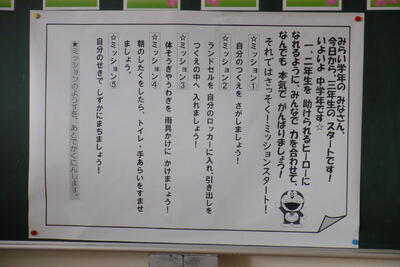 みらい学年の みなさん、
今日から、三年生の スタートです！
いよいよ 中学年です☆
一、二年生を 助けられるヒーローに
なれるように、みんなで 力を合わせて、
なんでも 本気で がんばりましょう！
それではさっそく！ミッションスタート！
☆ミッション①
自分のつくえを さがしましょう！
☆ミッション②
ランドセルを 自分のロッカーに入れ、引き出しを
つくえの中へ 入れましょう！
☆ミッション③
体そうぎやうわぎを 雨具かけに かけましょう！
☆ミッション④
朝のしたくをしたら、トイレ・手あらいをすませ
ましょう。
☆ミッション⑤
自分のせきで しずかにまちましょう！
★ミッションのようすを、あとでかくにんします。